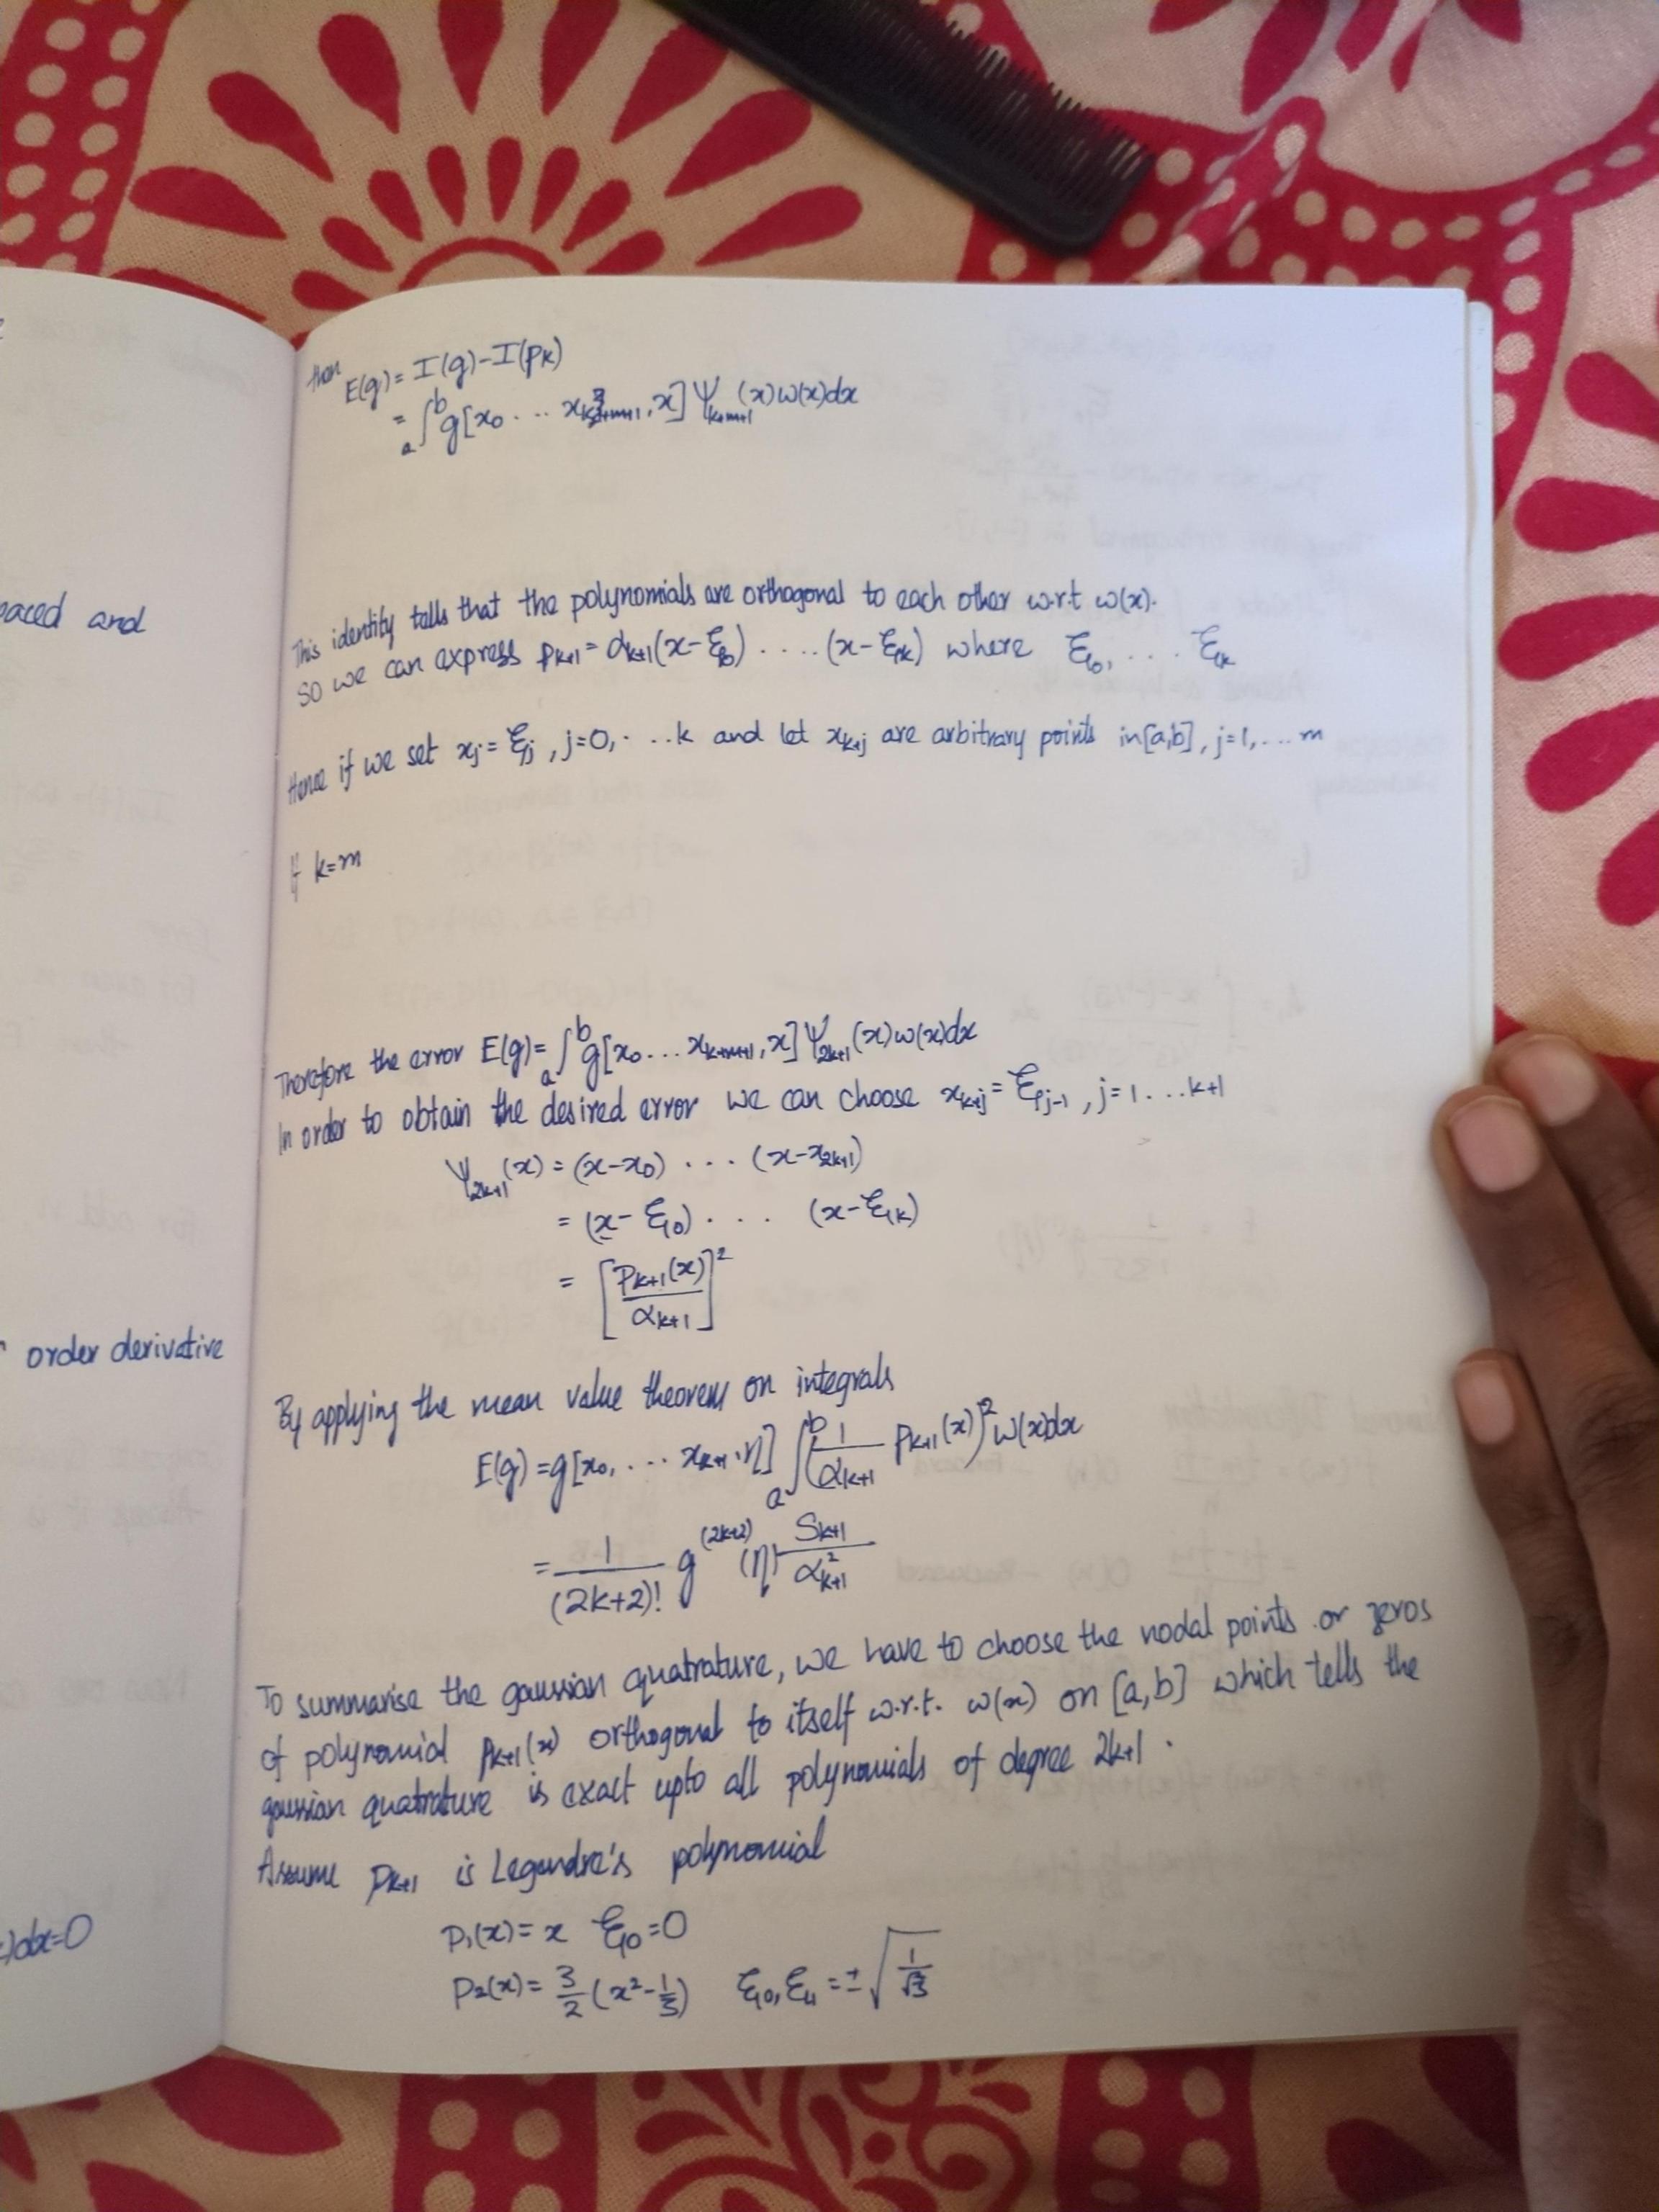 paced and
order derivative
)dx=0
then E(g)= I(g)-I(pk)
= a∫b g[x0 ... , x] Ψk+m+1 (x)w(x)dx
This identity tells that the polynomials are orthogonal to each other w.r.t w(x).
SO we can express pk+1 = αk+1(x-ξ0) .... (x-ξk) where ξ0, ... ξk
Hence if we set xj = ξj , j=0, ...k and let xk+j are arbitrary points in [a,b], j=1,... m
If k=m
Therefore the error E(g)= a∫b g[x0 ... xk+m+1, x] Ψ2k+1 (x)w(x)dx
In order to obtain the desired error we can choose xk+j = ξj-1 , j=1 ...k+1
Ψ2k+1(x) = (x-x0) ... (x-x2k+1)
= (x-ξ0) ... (x-ξk)
= [pk+1(x)/αk+1]²
By applying the mean value theorem on integrals
E(g) = g[x0, ... , η] a∫b (1/αk+1 pk+1(x))² w(x)dx
= 1/(2k+2)! g^(2k+2) (η) Sk+1/α²k+1
To summarise the gaussian quatrature, we have to choose the nodal points or zeros
of polynomial pk+1(x) orthogonal to itself w.r.t. w(x) on [a,b] which tells the
gaussian quatrature is exact upto all polynomials of degree 2k+1 .
Assume Pk+1 is Legendre's polynomial
P1(x) = x ξ0=0
P2(x) = 3/2 (x²-1/3) ξ0, ξ1 = ±√(1/√3)